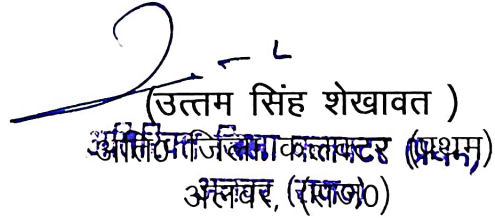 (उत्तम सिंह शेखावत )
अति० जिला कलक्टर (प्रथम)
अलवर, (राज०)